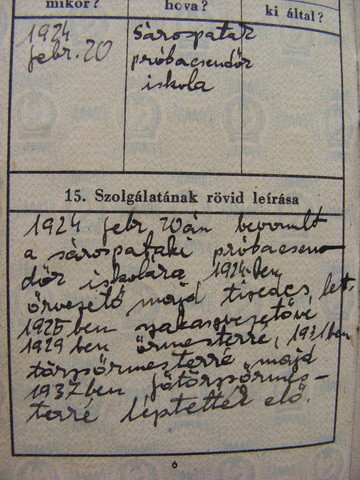 mikor?
hova?
ki által?
1924
febr. 20
Sárospatak
próbacsendőr
iskola
15. Szolgálatának rövid leírása
1924 febr. 20án bevonult
a sárospataki próbacsen-
dőr iskolára 1924-ben
őrvezető majd tizedes, lett
1925ben szakaszvezetővé
1929 ben őrmesterré, 1931ben
törzsőrmesterré majd
1937ben főtörzsőrmes-
terré léptették elő.
6